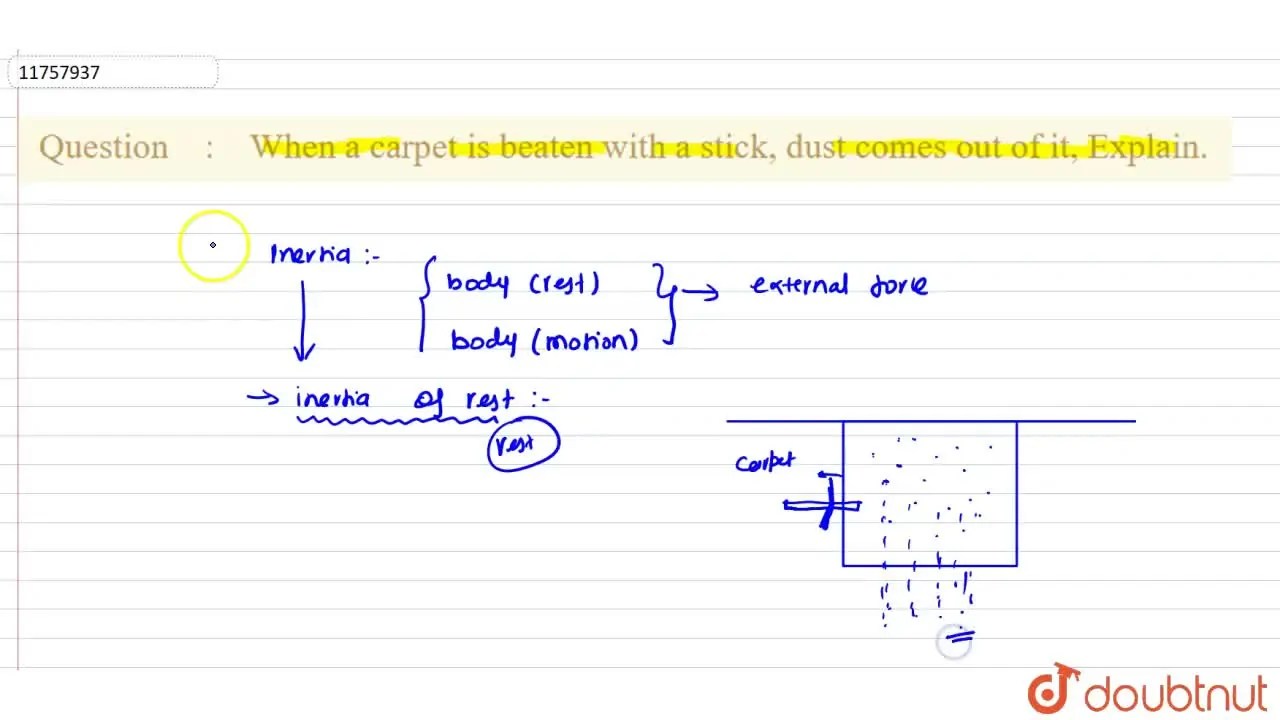 11757937
Question : When a carpet is beaten with a stick, dust comes out of it, Explain.
Inertia :-
body (rest)
body (motion)
external force
→ inertia of rest :-
rest
carpet
doubtnut